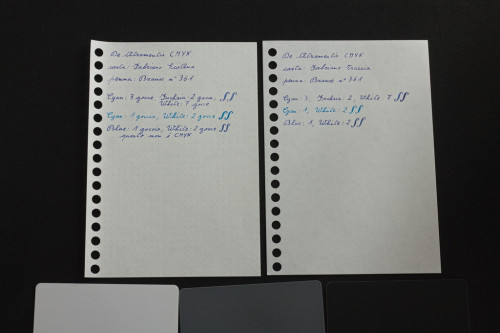 De Atramentis CMYK
carta: Fabriano Ecoqua
penna: Brause n° 361
Cyan: 3 gocce, Fuchsia: 2 gocce,
White: 7 gocce
Cyan: 1 goccia, White: 2 gocce
Blue: 1 goccia, White: 2 gocce
questo non è CMYK
De Atramentis CMYK
carta: Fabriano Traccia
penna: Brause n° 361
Cyan: 3, Fuchsia: 2, White: 7
Cyan: 1, White: 2
Blue: 1, White: 2